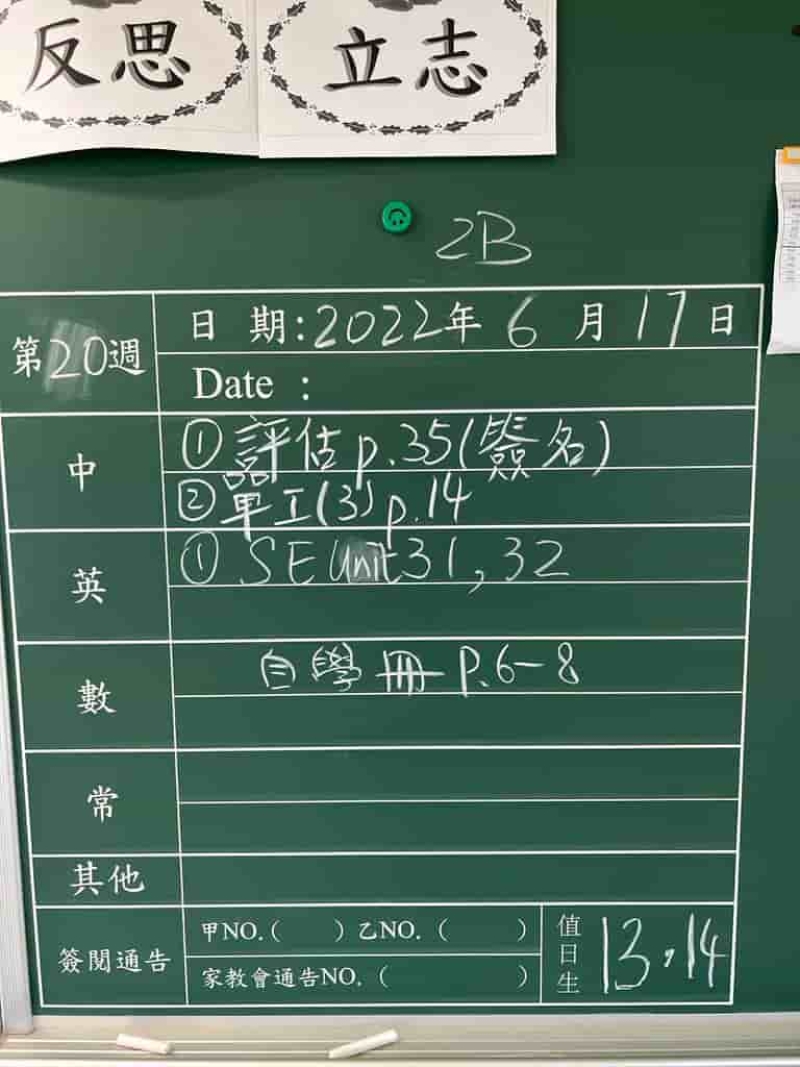 反思 立志
2B
第20週
日 期:2022年 6 月 17日
Date :
中
① 評估 p.35(簽名)
② 單工(3) p.14
英
① SE Unit 31, 32
數
自學冊 P.6-8
常
其他
簽閱通告
甲NO.( ) 乙NO. ( )
家教會通告NO. ( )
值日生
13,14